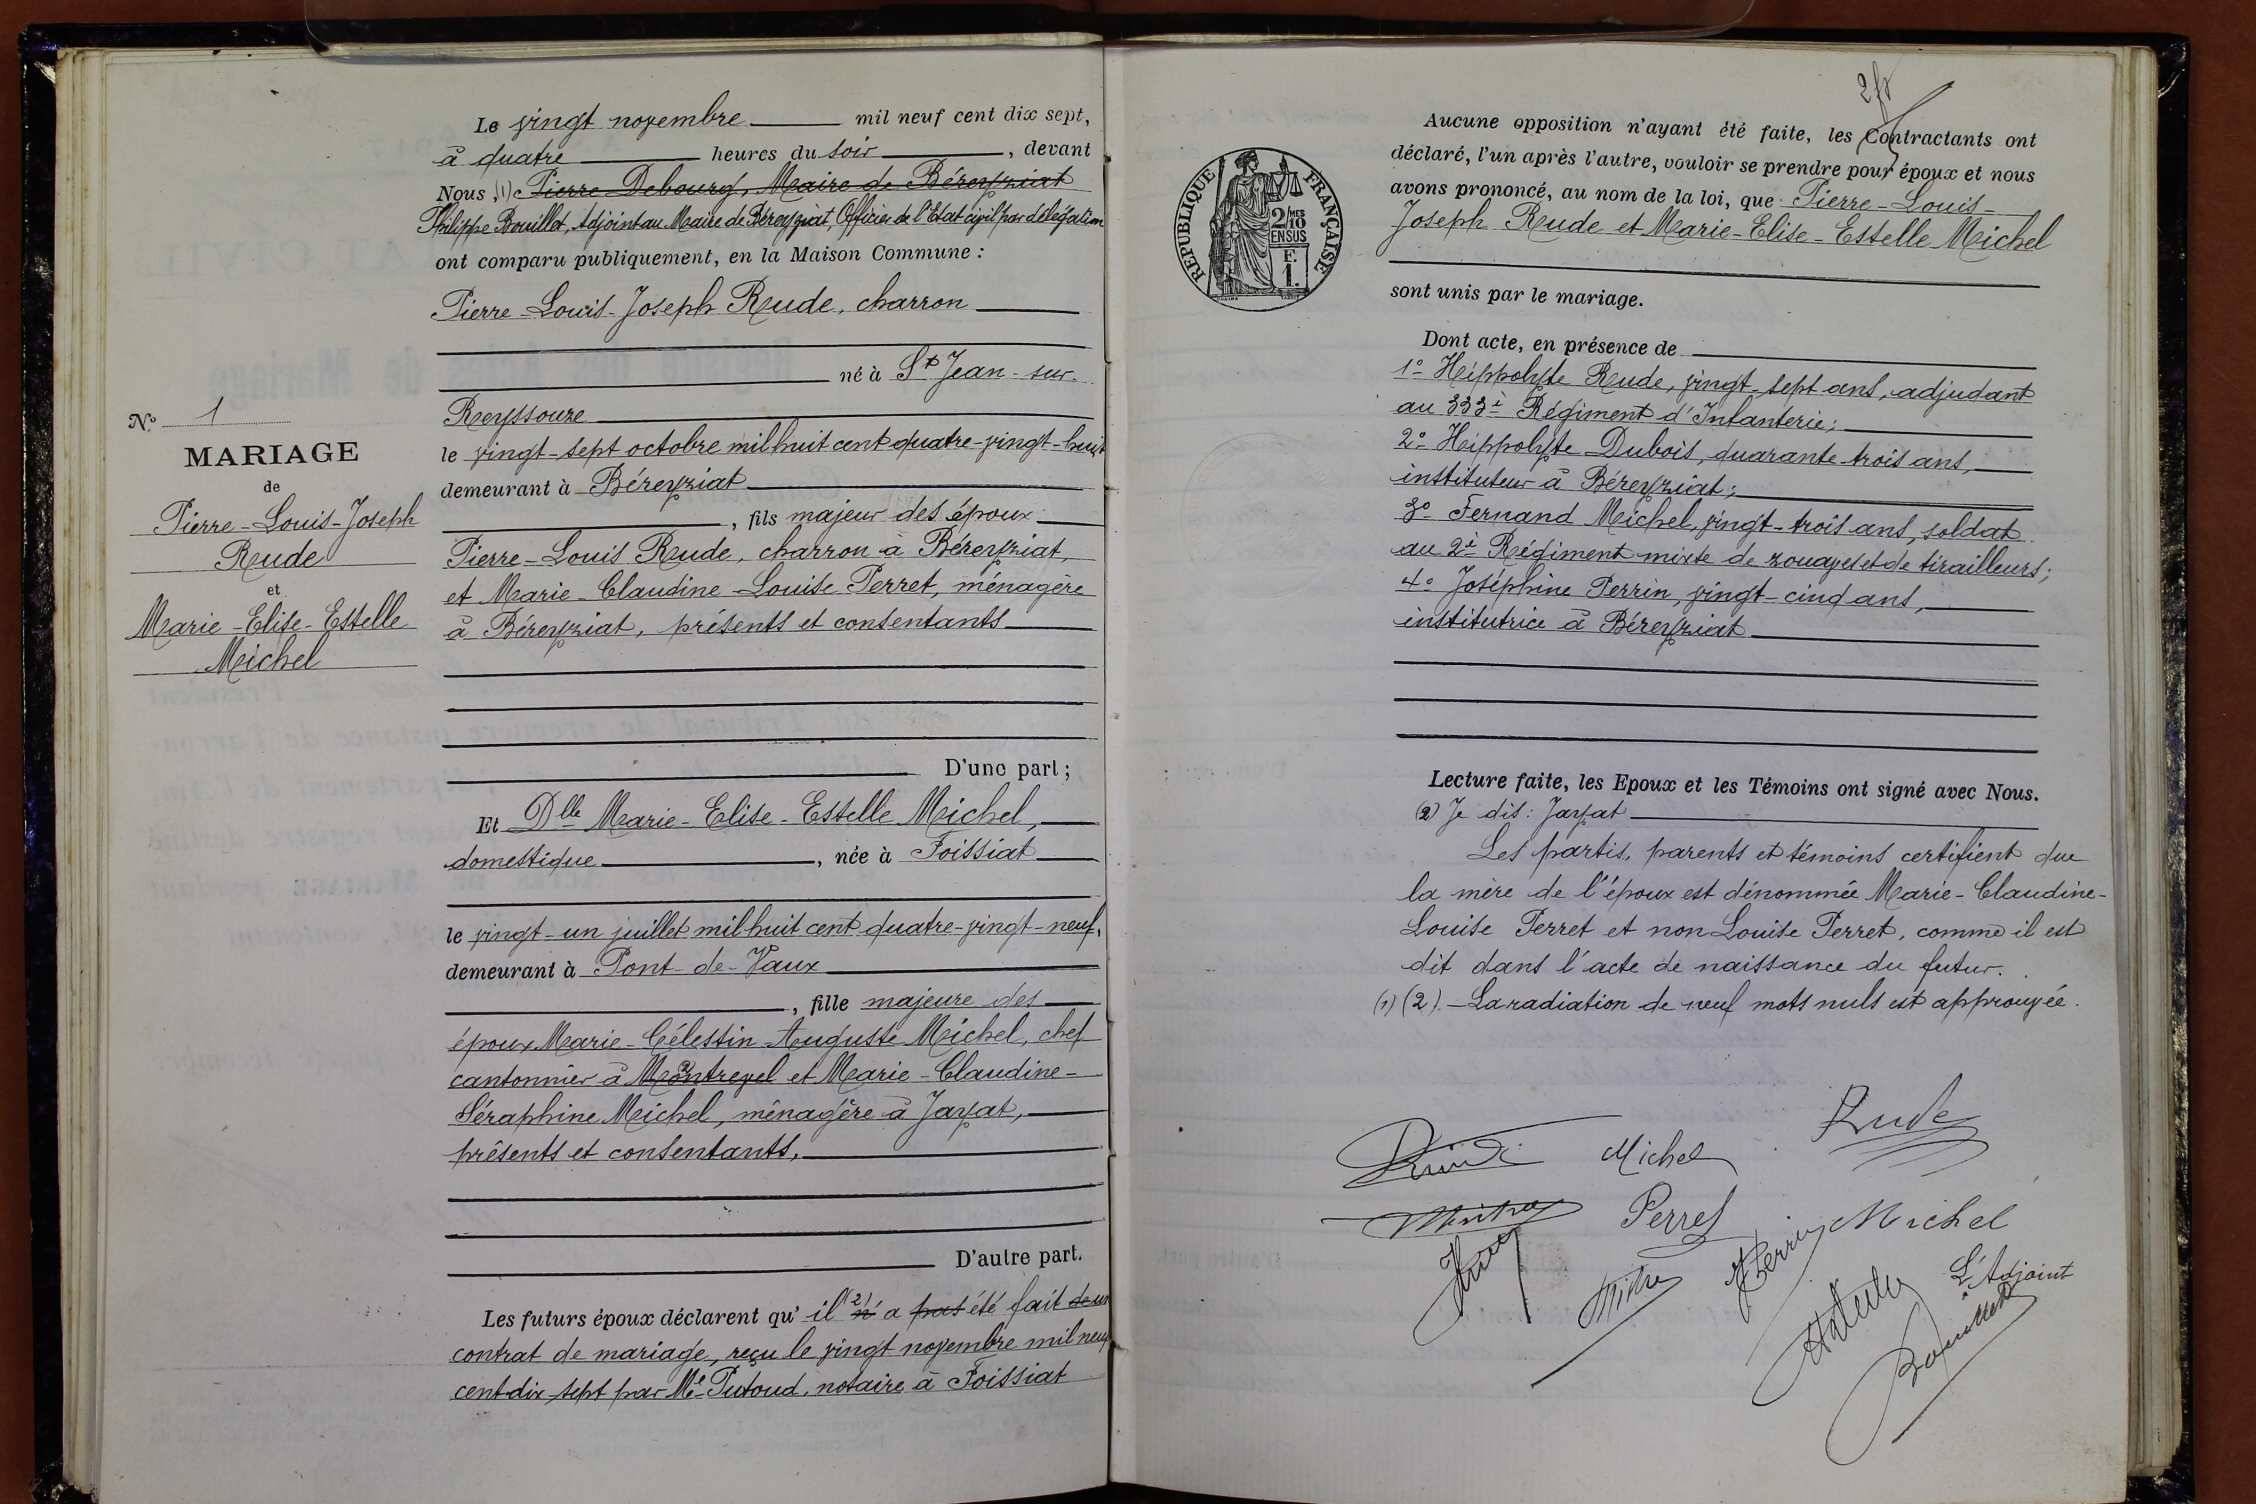 N.º 1
MARIAGE
de
Pierre-Louis-Joseph
Rude
et
Marie-Elise-Estelle
Michel
Le vingt novembre mil neuf cent dix sept,
à quatre heures du soir, devant
Nous, (1) Pierre Debourg, Maire de Béreyziat
Philippe Bouillet, Adjoint au Maire de Béreyziat, Officier de l'Etat civil par délégation
ont comparu publiquement, en la Maison Commune :
Pierre-Louis-Joseph Rude, charron
né à St Jean-sur-
Reyssouze
le vingt-sept octobre mil huit cent quatre-vingt-huit
demeurant à Béreyziat
, fils majeur des époux
Pierre-Louis Rude, charron à Béreyziat,
et Marie-Claudine-Louise Perret, ménagère
à Béreyziat, présents et consentants
D'une part ;
Et Dlle Marie-Elise-Estelle Michel,
domestique, née à Foissiat
le vingt-un juillet mil huit cent quatre-vingt-neuf,
demeurant à Pont-de-Vaux
, fille majeure des
époux Marie-Célestin-Auguste Michel, chef
cantonnier à Montrevel et Marie-Claudine-
Séraphine Michel, ménagère à Jayat,
présents et consentants,
D'autre part.
Les futurs époux déclarent qu'il (2) n' a pas été fait de un
contrat de mariage, reçu le vingt novembre mil neuf
cent dix-sept par Me Putoud, notaire à Foissiat
2 fr
Aucune opposition n'ayant été faite, les Contractants ont
déclaré, l'un après l'autre, vouloir se prendre pour époux et nous
avons prononcé, au nom de la loi, que Pierre-Louis-
Joseph Rude et Marie-Elise-Estelle Michel
sont unis par le mariage.
RÉPUBLIQUE FRANÇAISE
2/10 MES
EN SUS
F.
1.
Dont acte, en présence de
1º Hippolyte Rude, vingt-sept ans, adjudant
au 333è Régiment d'Infanterie;
2º Hippolyte Dubois, quarante trois ans,
instituteur à Béreyziat;
3º Fernand Michel, vingt-trois ans, soldat
au 2è Régiment mixte de zouaves et de tirailleurs;
4º Joséphine Perrin, vingt-cinq ans,
institutrice à Béreyziat
Lecture faite, les Epoux et les Témoins ont signé avec Nous.
(2) Je dis : Jayat
Les partis, parents et témoins certifient que
la mère de l'époux est dénommée Marie-Claudine-
Louise Perret et non Louise Perret, comme il est
dit dans l'acte de naissance du futur.
(1) (2). La radiation de neuf mots nuls est approuvée.
Rude
Michel
Rude
Perret
Michel
Perrin
L'Adjoint
Bouillet